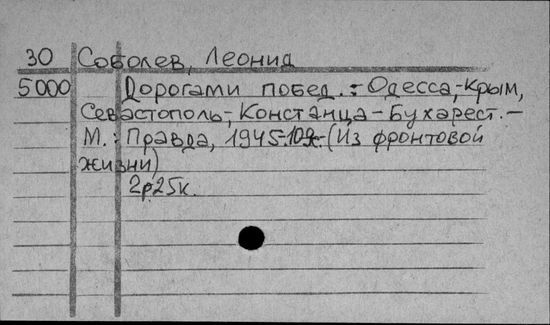 30 Соболев, Леонид
5000 Дорогами побед. - Одесса,-Крым,
Севастополь,-Констанца-Бухарест.-
М.: Правда, 1945.-109с.-(Из фронтовой
жизни)
2р25к.